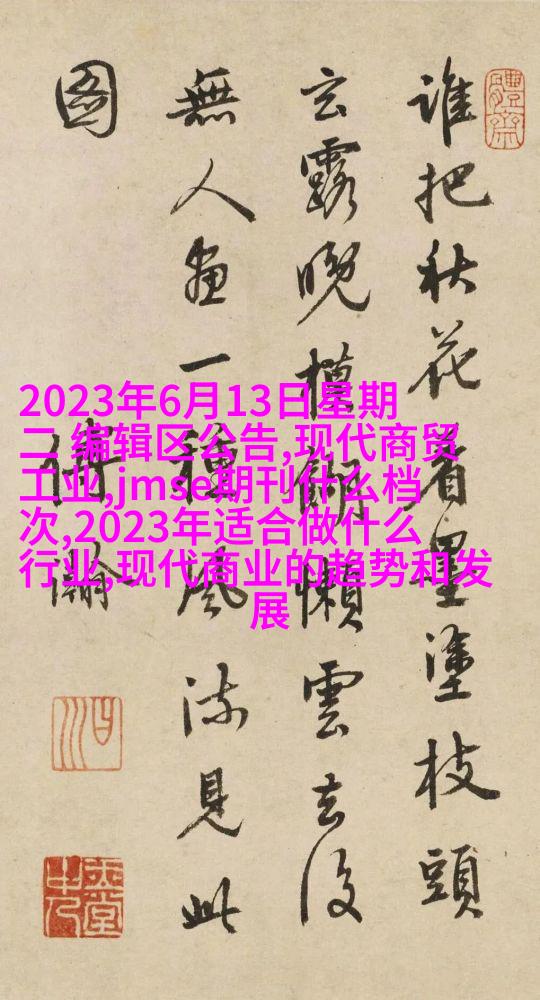 體齋
誰把秋花着墨塗枝頭
玄露晚模餬懶雲去後
無人畫一種風流見此
圖
傅瀚
曰川
玉堂中人
2023年6月13日星期
二 编辑区公告,现代商贸
工业,jmse期刊什么档
次,2023年适合做什么
行业,现代商业的趋势和发
展